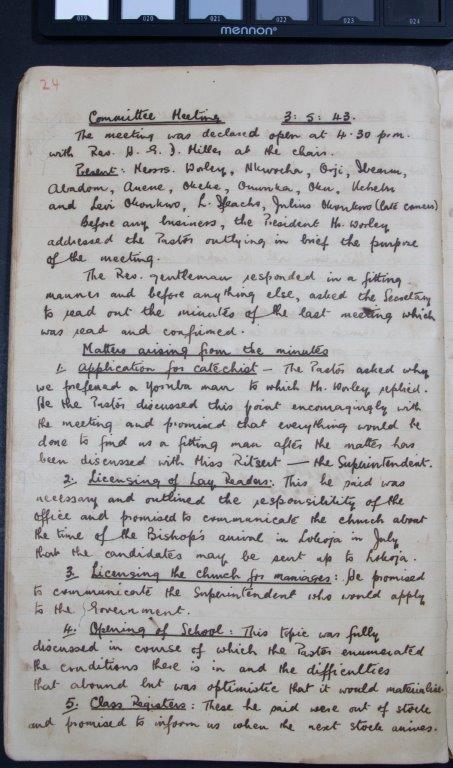 019 020 021 022 023 024
mennon®
24
Committee Meeting 3:5:43.
The meeting was declared open at 4.30 p.m.
with Rev. H. G. J. Miller at the chair.
Present: Messrs. Worley, Nkwocha, Orji, Ibeanu,
Aladom, Okeke, Onwuka, Oku,
and Levi Okonkwo, L. Ifeachs, Julius Okonkwo (late comers)
Before any business, the President Mr. Worley
addressed the Pastor outlying in brief the purpose
of the meeting.
The Rev. gentleman responded in a fitting
manner and before anything else, asked the Secretary
to read out the minutes of the last meeting which
was read and confirmed.
Matters arising from the minutes
1. Application for catechist — The Pastor asked why
we preferred a Yoruba man to which Mr. Worley replied.
He the Pastor discussed this point encouragingly with
the meeting and promised that everything would be
done to find us a fitting man after the matter has
been discussed with Miss Ritsert — the Superintendent.
2. Licensing of Lay Readers: This he said was
necessary and outlined the responsibility of the
office and promised to communicate the church about
the time of the Bishop's arrival in Lokoja in July
that the candidates may be sent up to Lokoja.
3. Licensing the church for marriages: He promised
to communicate the Superintendent who would apply
to the Government.
4. Opening of School: This topic was fully
discussed in course of which the Pastor enumerated
the conditions there is in and the difficulties
that abound but was optimistic that it would materialise.
5. Class Registers: These he said were out of stock
and promised to inform us when the next stock arrives.